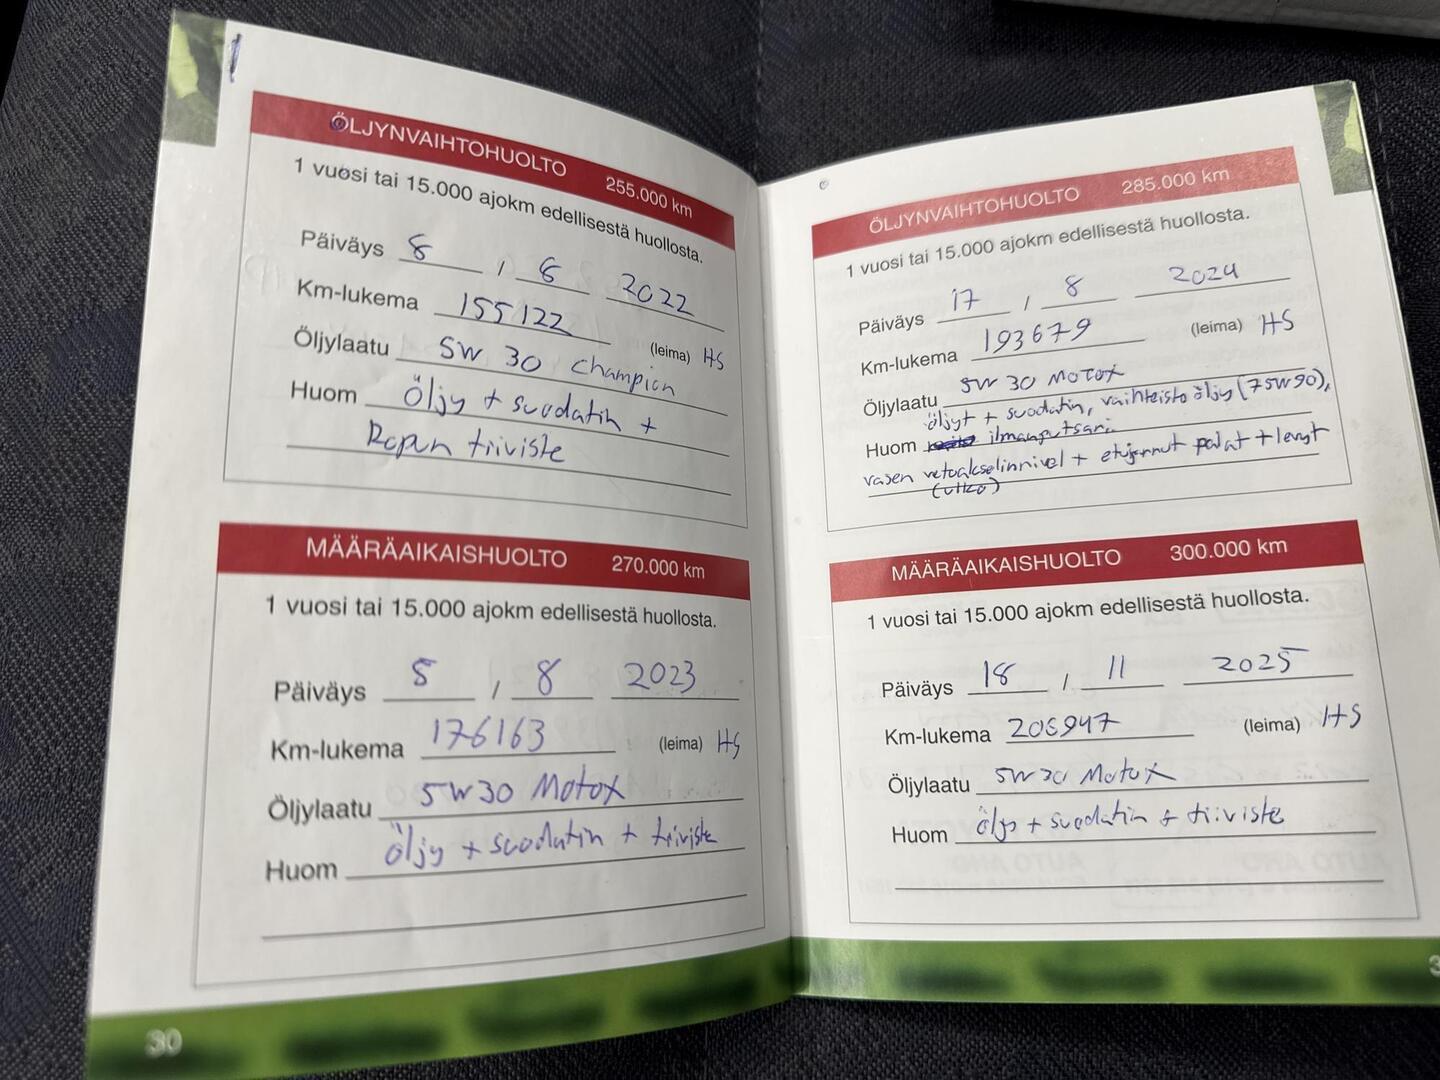 ÖLJYNVAIHTOHUOLTO 255.000 km
1 vuosi tai 15.000 ajokm edellisestä huollosta.
Päiväys 8 / 6 2022
Km-lukema 155122
Öljylaatu 5W 30 Champion (leima) HS
Huom Öljy + suodatin +
Ropun tiiviste
MÄÄRÄAIKAISHUOLTO 270.000 km
1 vuosi tai 15.000 ajokm edellisestä huollosta.
Päiväys 5 / 8 2023
Km-lukema 176163 (leima) HS
Öljylaatu 5W30 Motox
Huom öljy + suodatin + tiiviste
30
ÖLJYNVAIHTOHUOLTO 285.000 km
1 vuosi tai 15.000 ajokm edellisestä huollosta.
Päiväys 17 / 8 2024
Km-lukema 193679 (leima) HS
Öljylaatu 5W 30 Motox
öljyt + suodatin, vaihteisto öljy (75W90),
Huom ilmanputsari
vasen vetoakselinnivel + etujarrut palat + levyt
(ulko)
MÄÄRÄAIKAISHUOLTO 300.000 km
1 vuosi tai 15.000 ajokm edellisestä huollosta.
Päiväys 18 / 11 2025
Km-lukema 206947 (leima) HS
Öljylaatu 5W30 Motox
Huom öljy + suodatin + tiiviste